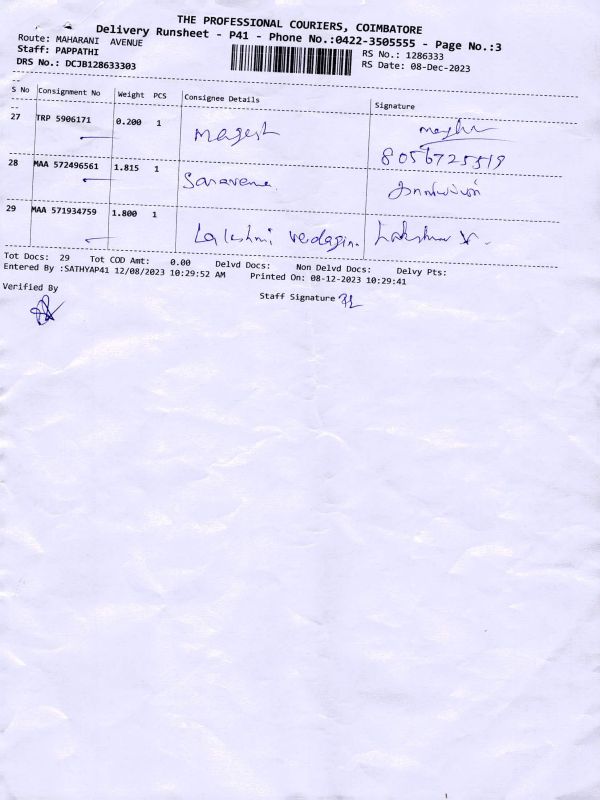 THE PROFESSIONAL COURIERS, COIMBATORE
Delivery Runsheet - P41 - Phone No.:0422-3505555 - Page No.:3
Route: MAHARANI AVENUE
RS No.: 1286333
Staff: PAPPATHI
RS Date: 08-Dec-2023
DRS No.: DCJB128633303
S No Consignment No Weight PCS Consignee Details Signature
27 TRP 5906171 0.200 1 Magesh
8056725519
28 MAA 572496561 1.815 1 Saravana
29 MAA 571934759 1.800 1 Lakshmi
Tot Docs: 29 Tot COD Amt: 0.00 Delvd Docs: Non Delvd Docs: Delvy Pts:
Entered By :SATHYAP41 12/08/2023 10:29:52 AM Printed On: 08-12-2023 10:29:41
Verified By
Staff Signature